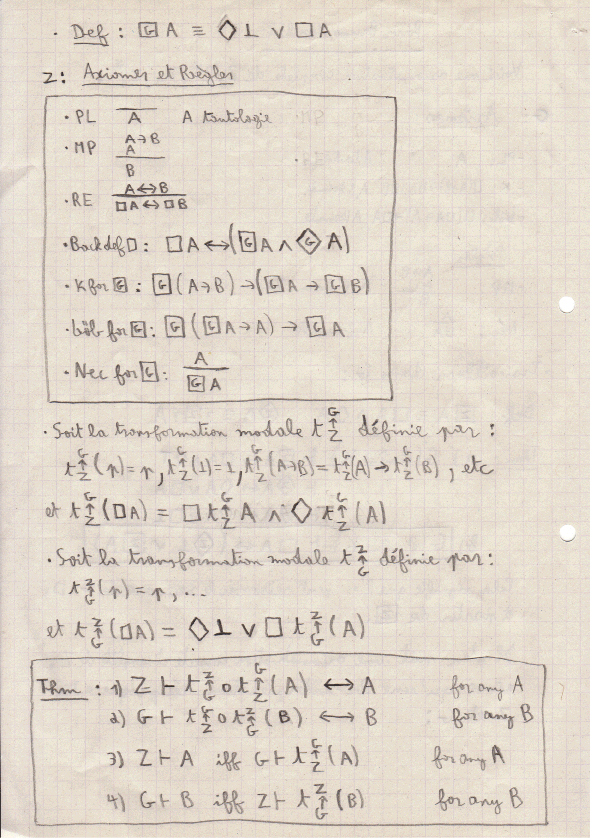 · Def : [G] A ≡ ◇⊥ ∨ □A
Z: Axiomes et Règles
· PL   A   A tautologie
· MP   A→B
A
B
· RE   A↔B
□A↔□B
· Backdef□: □A↔([G]A ∧ <G>A)
· K for [G] : [G](A→B)→([G]A → [G]B)
· Löb for [G]: [G]([G]A→A) → [G]A
· Nec for [G]: A
[G]A
· Soit la transformation modale t G↑Z définie par :
t G↑Z(p)=p, t G↑Z(⊥)=⊥, t G↑Z(A→B)= t G↑Z(A) → t G↑Z(B), etc
et t G↑Z(□A) = □ t G↑Z A ∧ ◇ t G↑Z(A)
· Soit la transformation modale t Z↑G définie par:
t Z↑G(p)=p, ...
et t Z↑G(□A) = ◇⊥ ∨ □ t Z↑G(A)
Thm : 1) Z ⊢ t Z↑G o t G↑Z(A) ↔ A   for any A
2) G ⊢ t G↑Z o t Z↑G(B) ↔ B   for any B
3) Z ⊢ A iff G ⊢ t G↑Z(A)   for any A
4) G ⊢ B iff Z ⊢ t Z↑G(B)   for any B